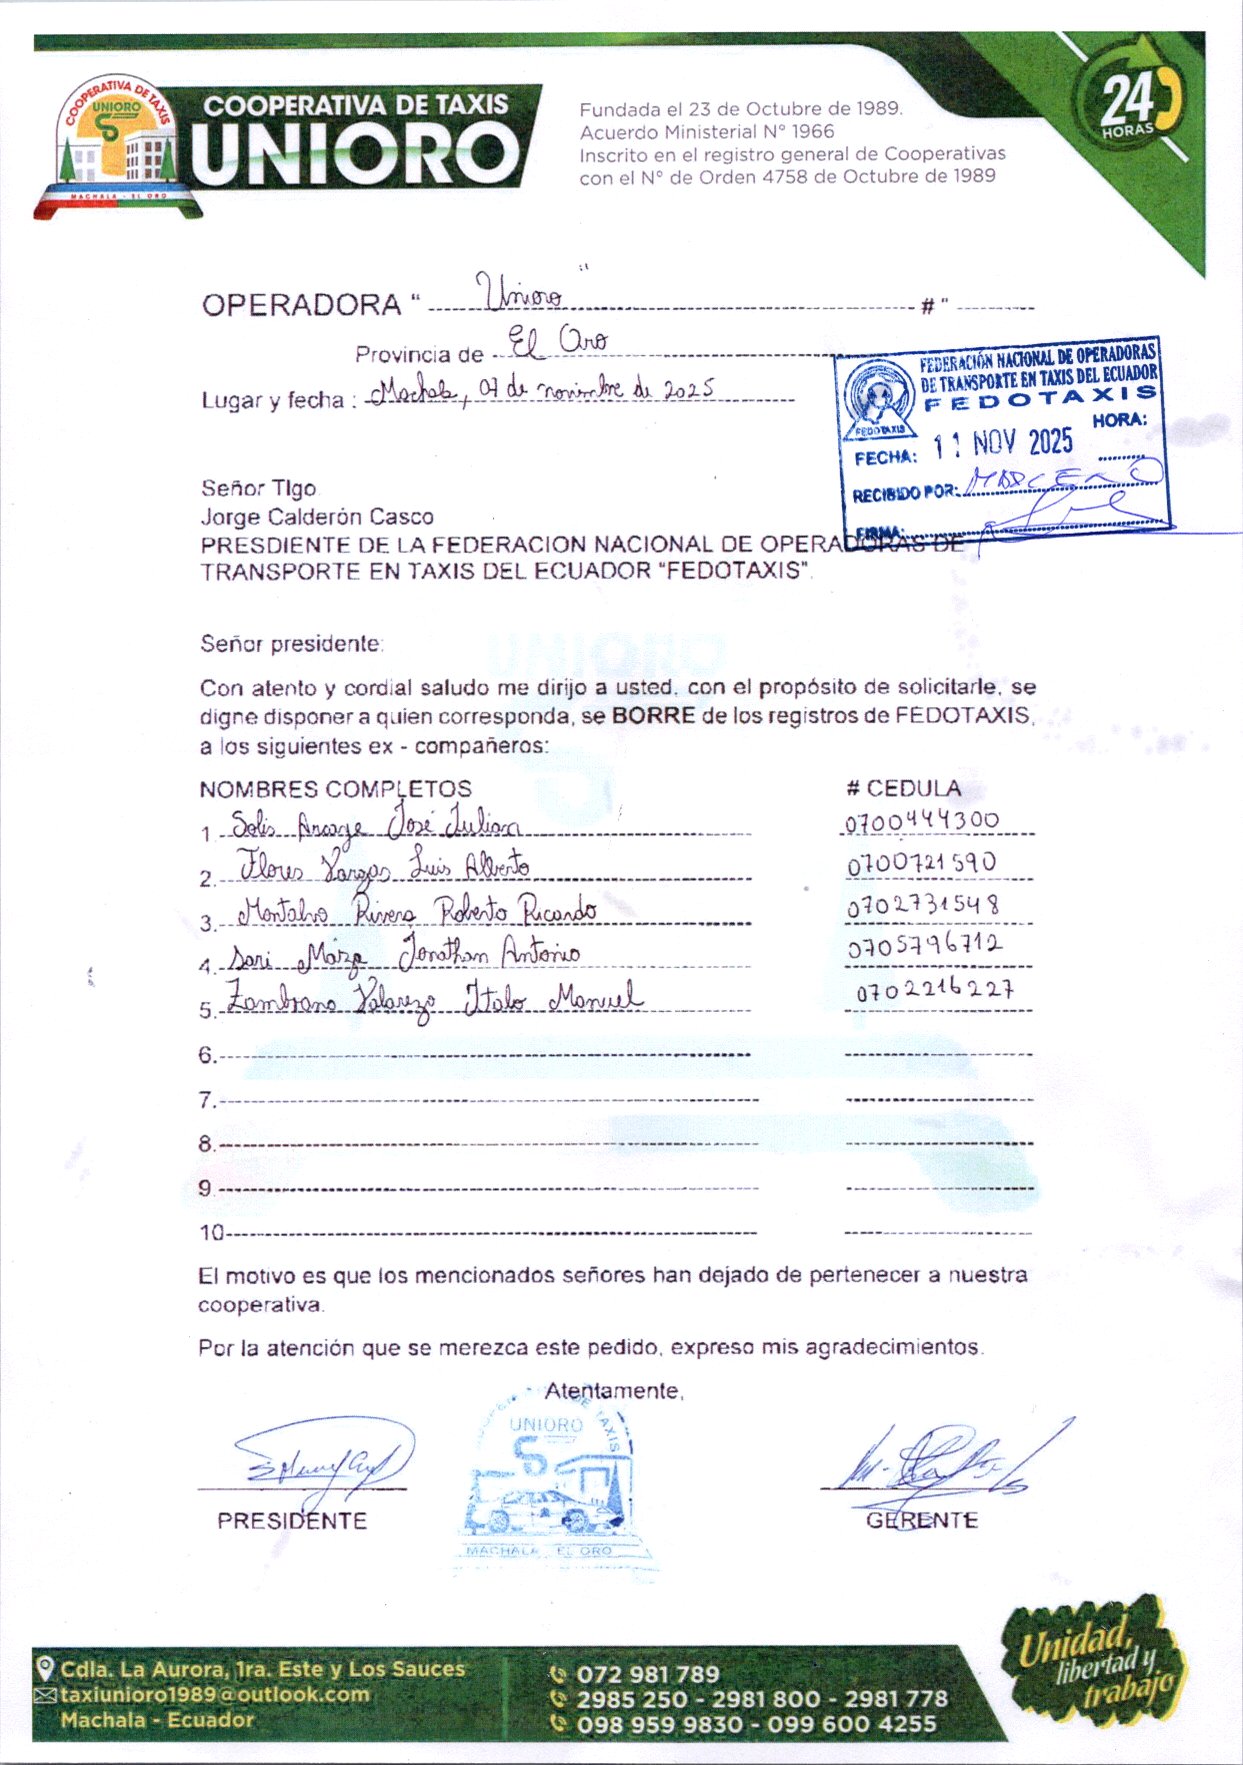 COOPERATIVA DE TAXIS
UNIORO
MACHALA - EL ORO
COOPERATIVA DE TAXIS
UNIORO
Fundada el 23 de Octubre de 1989.
Acuerdo Ministerial N° 1966
Inscrito en el registro general de Cooperativas
con el N° de Orden 4758 de Octubre de 1989
24
HORAS
OPERADORA " Unioro " # "
Provincia de El Oro
Lugar y fecha : Machala, 07 de noviembre de 2025
FEDERACIÓN NACIONAL DE OPERADORAS
DE TRANSPORTE EN TAXIS DEL ECUADOR
FEDOTAXIS
FEDOTAXIS
HORA:
FECHA: 11 NOV 2025
RECIBIDO POR: MARCELO
FIRMA:
Señor Tlgo.
Jorge Calderón Casco
PRESDIENTE DE LA FEDERACION NACIONAL DE OPERADORAS DE
TRANSPORTE EN TAXIS DEL ECUADOR "FEDOTAXIS".
Señor presidente:
Con atento y cordial saludo me dirijo a usted, con el propósito de solicitarle, se
digne disponer a quien corresponda, se BORRE de los registros de FEDOTAXIS,
a los siguientes ex - compañeros:
NOMBRES COMPLETOS # CEDULA
1 Solis Arcaye José Julian 0700444300
2. Flores Vargas Luis Alberto 0700721590
3. Montalvo Rivera Roberto Ricardo 0702731548
4. Sari Maiza Jonathan Antonio 0705796712
5. Zambrano Valarezo Italo Manuel 0702216227
6.
7.
8.
9.
10
El motivo es que los mencionados señores han dejado de pertenecer a nuestra
cooperativa.
Por la atención que se merezca este pedido, expreso mis agradecimientos.
Atentamente,
UNIORO
MACHALA - EL ORO
PRESIDENTE GERENTE
Unidad,
libertad y
trabajo
Cdla. La Aurora, 1ra. Este y Los Sauces
taxiunioro1989@outlook.com
Machala - Ecuador
072 981 789
2985 250 - 2981 800 - 2981 778
098 959 9830 - 099 600 4255